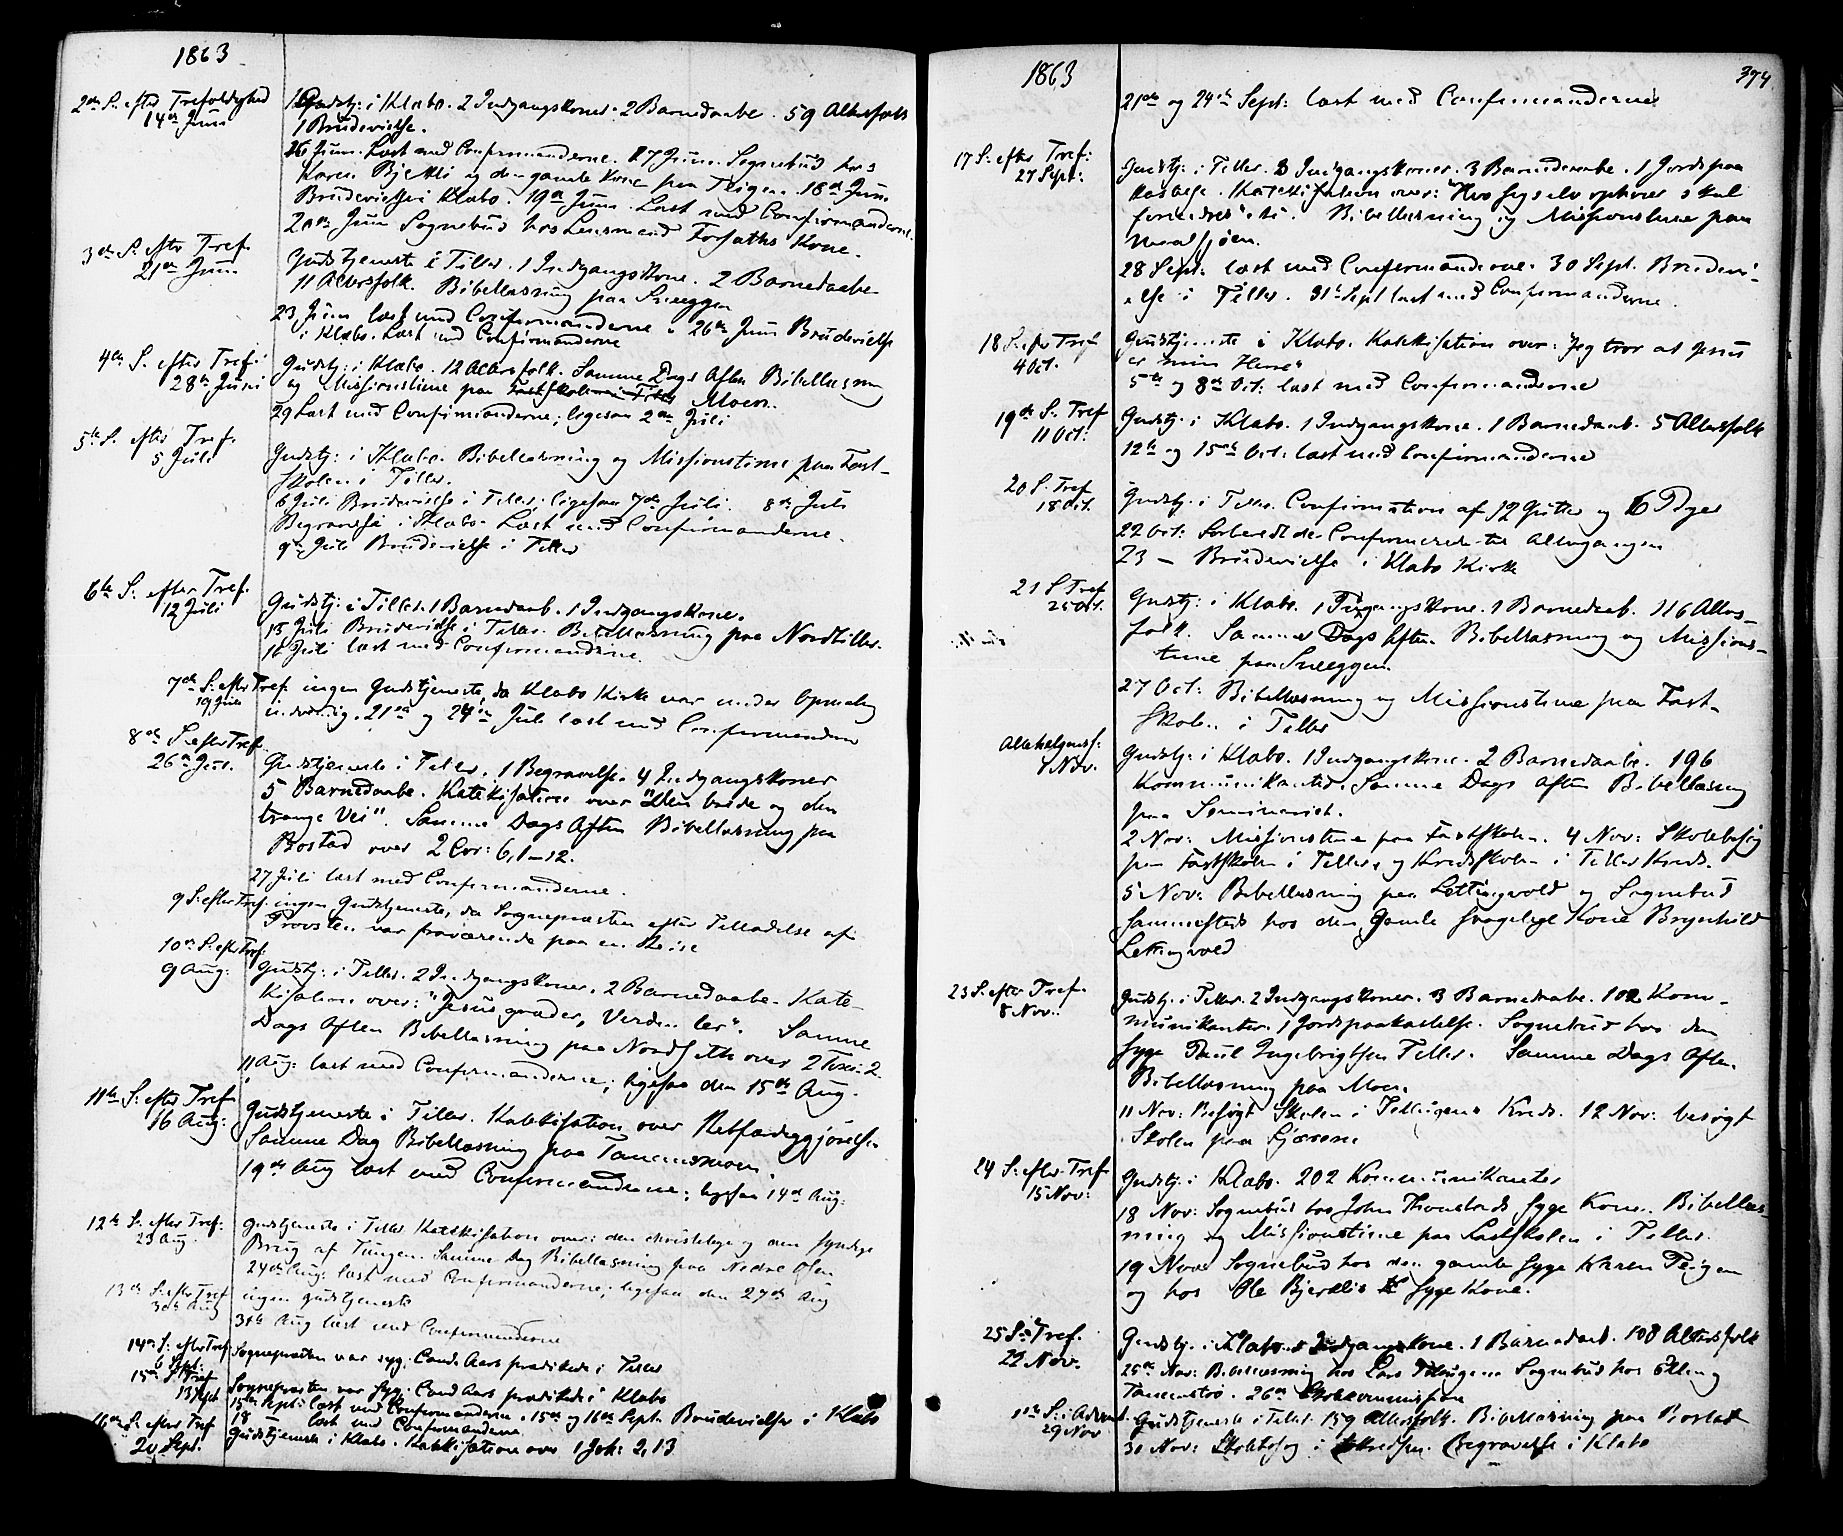 1863
2den S. efter Trefoldighed
14de Juni
Gudstj: i Klæbo. 2 Indgangskoner. 2 Barnedaabe. 59 Altersfolk
1 Brudevielse.
16 Juni. Læst med Confirmanderne. 17 Juni. Sognebud hos
Karen Bjekli og den gamle Kone paa Teigen. 18de Juni
Brudevielse i Klæbo. 19de Juni. Læst med Confirmanderne.
20de Juni Sognebud hos Lensmand Forsæths Kone.
3die S. efter Tref.
21de Juni
Gudstjeneste i Tiller. 1 Indgangskone. 2 Barnedaabe
11 Altersfolk. Bibellæsning paa Sneeggen
23 Juni læst med Confirmanderne. 26de Juni Brudevielse
i Klæbo. Læst med Confirmanderne
4de S. efter Tref.
28de Juni
Gudstj: i Klæbo. 12 Altersfolk. Samme Dags Aften Bibellæsning
og Missionstime paa Fastskolen i Tiller Moen.
29 Læst med Confirmanderne; ligesaa 2den Juli
5te S. efter Tref.
5 Juli
Gudstj: i Klæbo. Bibellæsning og Missionstime paa Fast-
skolen i Tiller.
6 Juli Brudevielse i Tiller; ligesaa 7de Juli. 8de Juli
Begravelse i Klæbo. Læst med Confirmanderne.
9de Juli Brudevielse i Tiller
6te S. efter Tref.
12 Juli
Gudstj: i Tiller. 1 Barnedaab. 1 Indgangskone.
15 Juli Brudevielse i Tiller. Bibellæsning paa Nordtiller.
16 Juli læst med Confirmanderne.
7de S. efter Tref.
19 Juli
ingen Gudstjeneste, da Klæbo Kirke var under Opmaling
indvendig. 21de og 24de Juli læst med Confirmanderne
8de S. efter Tref.
26de Juli.
Gudstjeneste i Tiller. 1 Begravelse. 4 Indgangskoner
5 Barnedaabe. Katekisation over "Den brede og den
trange Vei". Samme Dags Aften Bibellæsning paa
Rostad over 2 Cor: 6, 1-12.
27 Juli læst med Confirmanderne.
9 S. efter Tref.
ingen Gudstjeneste, da Sognepræsten efter Tilladelse af
Provsten var fraværende paa en Reise
10de S. efter Tref.
9 Aug:
Gudstj: i Tiller. 2 Indgangskoner. 2 Barnedaabe. Kate-
kisation over: "Jesus græder, Verden ler". Samme
Dags Aften Bibellæsning paa Nordsæth over 2
11 Aug: læst med Confirmanderne; ligesaa den 15de Aug.
11te S. efter Tref.
16 Aug:
Gudstjeneste i Tiller. Katekisation over Retfærdiggjørelse
Samme Dag Bibellæsning paa Tanemsmoen
19de Aug læst med Confirmanderne; ligesaa 14de Aug:
12te S. efter Tref:
23 Aug.
Gudstjeneste i Tiller Katekisation over: den christelige og den syndige
Brug af Tungen. Samme Dag Bibellæsning paa Nedre Osen
24de Aug: læst med Confirmanderne; ligesaa den 27de Aug
13de S. efter Tref
30de Aug
ingen Gudstjeneste
31te Aug læst med Confirmanderne
14de S. efter Tref
6 Sept:
Sognepræsten var syg. Cand. Aars prædikede i Tiller
15de S. Tref
13 Sept
Sognepræsten var syg. Cand Aars prædikede i Klæbo
15de Sept: læst med Confirmanderne. 15de og 16de Sept: Brudevielser i Klæbo
18 læst med Confirmanderne
16de S. efter Tref
20 Sept.
Gudstjeneste i Klæbo. Katekisation over 1 Joh: 2, 13
1863
374
21de og 24de Sept: læst med Confirmanderne
17 S. efter Tref:
27 Sept:
Gudstj: i Tiller. 3 Indgangskoner. 3 Barnedaabe. 1 Jordpaa-
kastelse. Katekisation over: "Hvo sig selv ophøier skal
fornedres" etc. Bibellæsning og Missionstime paa
28 Sept: læst med Confirmanderne. 30 Sept. Brudevi-
else i Tiller. 31te Sept læst med Confirmanderne.
18 S. efter Tref
4 Oct.
Gudstjeneste i Klæbo. Katekisation over: Jeg tror at Jesus
er min Herre"
5te og 8de Oct: læst med Confirmanderne
19de S. Tref
11 Oct:
Gudstj: i Klæbo. 1 Indgangskone. 1 Barnedaab. 5 Altersfolk
12te og 15de Oct: læst med Confirmanderne
20 S. Tref
18 Oct.
Gudstj: i Tiller. Confirmation af 12 Gutter og 16 Piger
22 Oct: forberedt de Confirmerede til Altergangen
23 — Brudevielse i Klæbo Kirke
21 S Tref
25 Oct.
Gudstj: i Klæbo. 1 Indgangskone. 1 Barnedaab. 116 Alters-
folk. Samme Dags Aften Bibellæsning og Missions-
time paa Sneeggen.
27 Oct: Bibellæsning og Missionstime paa Fast-
skolen i Tiller
Allehelgensf:
1 Nov.
Gudstj: i Klæbo. 1 Indgangskone. 2 Barnedaabe. 196
Kommunikanter. Samme Dags Aften Bibellæsning
paa Seminariet.
2 Nov: Missionstime paa Fastskolen. 4 Nov: Skolebesøg
paa Fastskolen i Tiller og Kredsskolen i Tiller Kreds.
5 Nov: Bibellæsning paa Lettingvold og Sognebud
sammesteds hos den gamle svagelige Kone Brynhild
Lettingvold
23 S. efter Tref.
8 Nov:
Gudstj: i Tiller. 2 Indgangskoner. 3 Barnedaabe. 102 Kom-
munikanter. 1 Jordpaakastelse. Sognebud hos den
syge Paul Ingebrigtsen Tiller. Samme Dags Aften
Bibellæsning paa Moen.
11 Nov: Besøgt Skolen i Teigens Kreds. 12 Nov: besøgt
Skolen paa Gjærem
24 S. efter Tref
15 Nov:
Gudstj: i Klæbo. 202 Kommunikanter
18 Nov: Sognebud hos John Thonstads syge Kone. Bibellæs-
ning og Missionstime paa Fastskolen i Tiller.
19 Nov: Sognebud hos den gamle syge Karen Teigen
og hos Ole Bjerklis syge Kone.
25 S. Tref.
22 Nov.
Gudstj: i Klæbo. 1 Indgangskone. 1 Barnedaab. 108 Altersfolk
25de Nov: Bibellæsning hos Lars Teigen. Sognebud hos Elling
26de Skolecommission
1ste S. i Advent
29 Nov
Gudstjeneste i Tiller. 159 Altersfolk. Bibellæsning paa Rostad
30 Nov: Skolebesøg i Begravelse i Klæbo